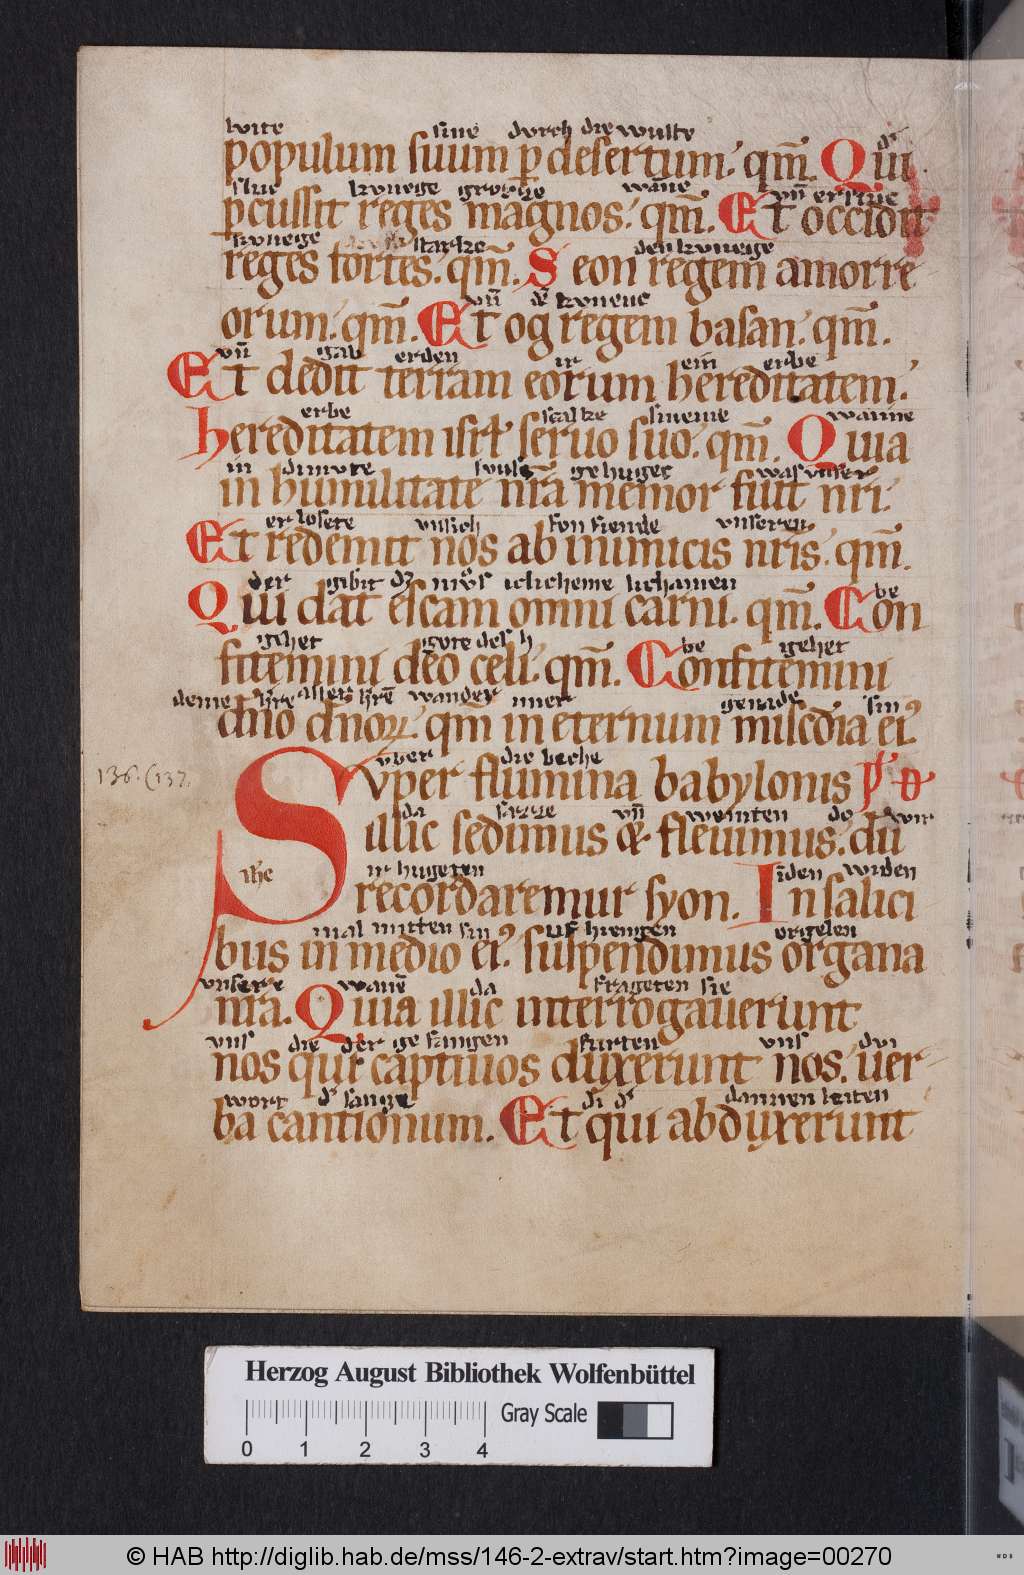 luite sine durch die wuste
populum suum ꝑ desertum. qm̄. Qui
sluc kunege grozze wāne vn̄ ersluc
ꝑcussit reges magnos. qm̄. Et occidit
kunege starke den kunege
reges fortes. qm̄. Seon regem amorre
vn̄ kunenc
orum. qm̄. Et og regem basan. qm̄.
vn̄ gab erden ir ein erbe
Et dedit terram eorum hereditatem.
erbe scalke sineme wanne
hereditatem isrl̄ seruo suo. qm̄. Quia
in dimute gehuget was unser
in humilitate nr̄a memor fuit nri.
er losete unsich fon fiende unseren
Et redemit nos ab inimicis nr̄is. qm̄.
der gibit dz mvͦs iclicheme lichamen be
Qui dat escam omni carni. qm̄. Con
gehet gote des h be gehet
fitemini deo celi. qm̄. Confitemini
deme h̄re aller h̄rē wander imer genade sin
dn̄o dn̄oꝝ. qm̄ in eternum misc̄dia ei᷒.
vber die beche
Svper flumina babylonis
136. (137.
da sazze vn̄ weinten do wir
illic sedimus & fleuimus: dū
ir hugeten īden widen
recordaremur syon. In salici
mitten sin uf hiengen orgelen
bus in medio ei᷒. suspendimus organa
unsere wanē da frageten sie
nr̄a. Quia illic interrogauerunt
vns die der gefangen furten vns dui
nos qui captiuos duxerunt nos. uer-
wort d̓ sange di d̓ dannen leiten
ba cantionum. Et qui abduxerunt
Herzog August Bibliothek Wolfenbüttel
Gray Scale
0 1 2 3 4
© HAB http://diglib.hab.de/mss/146-2-extrav/start.htm?image=00270